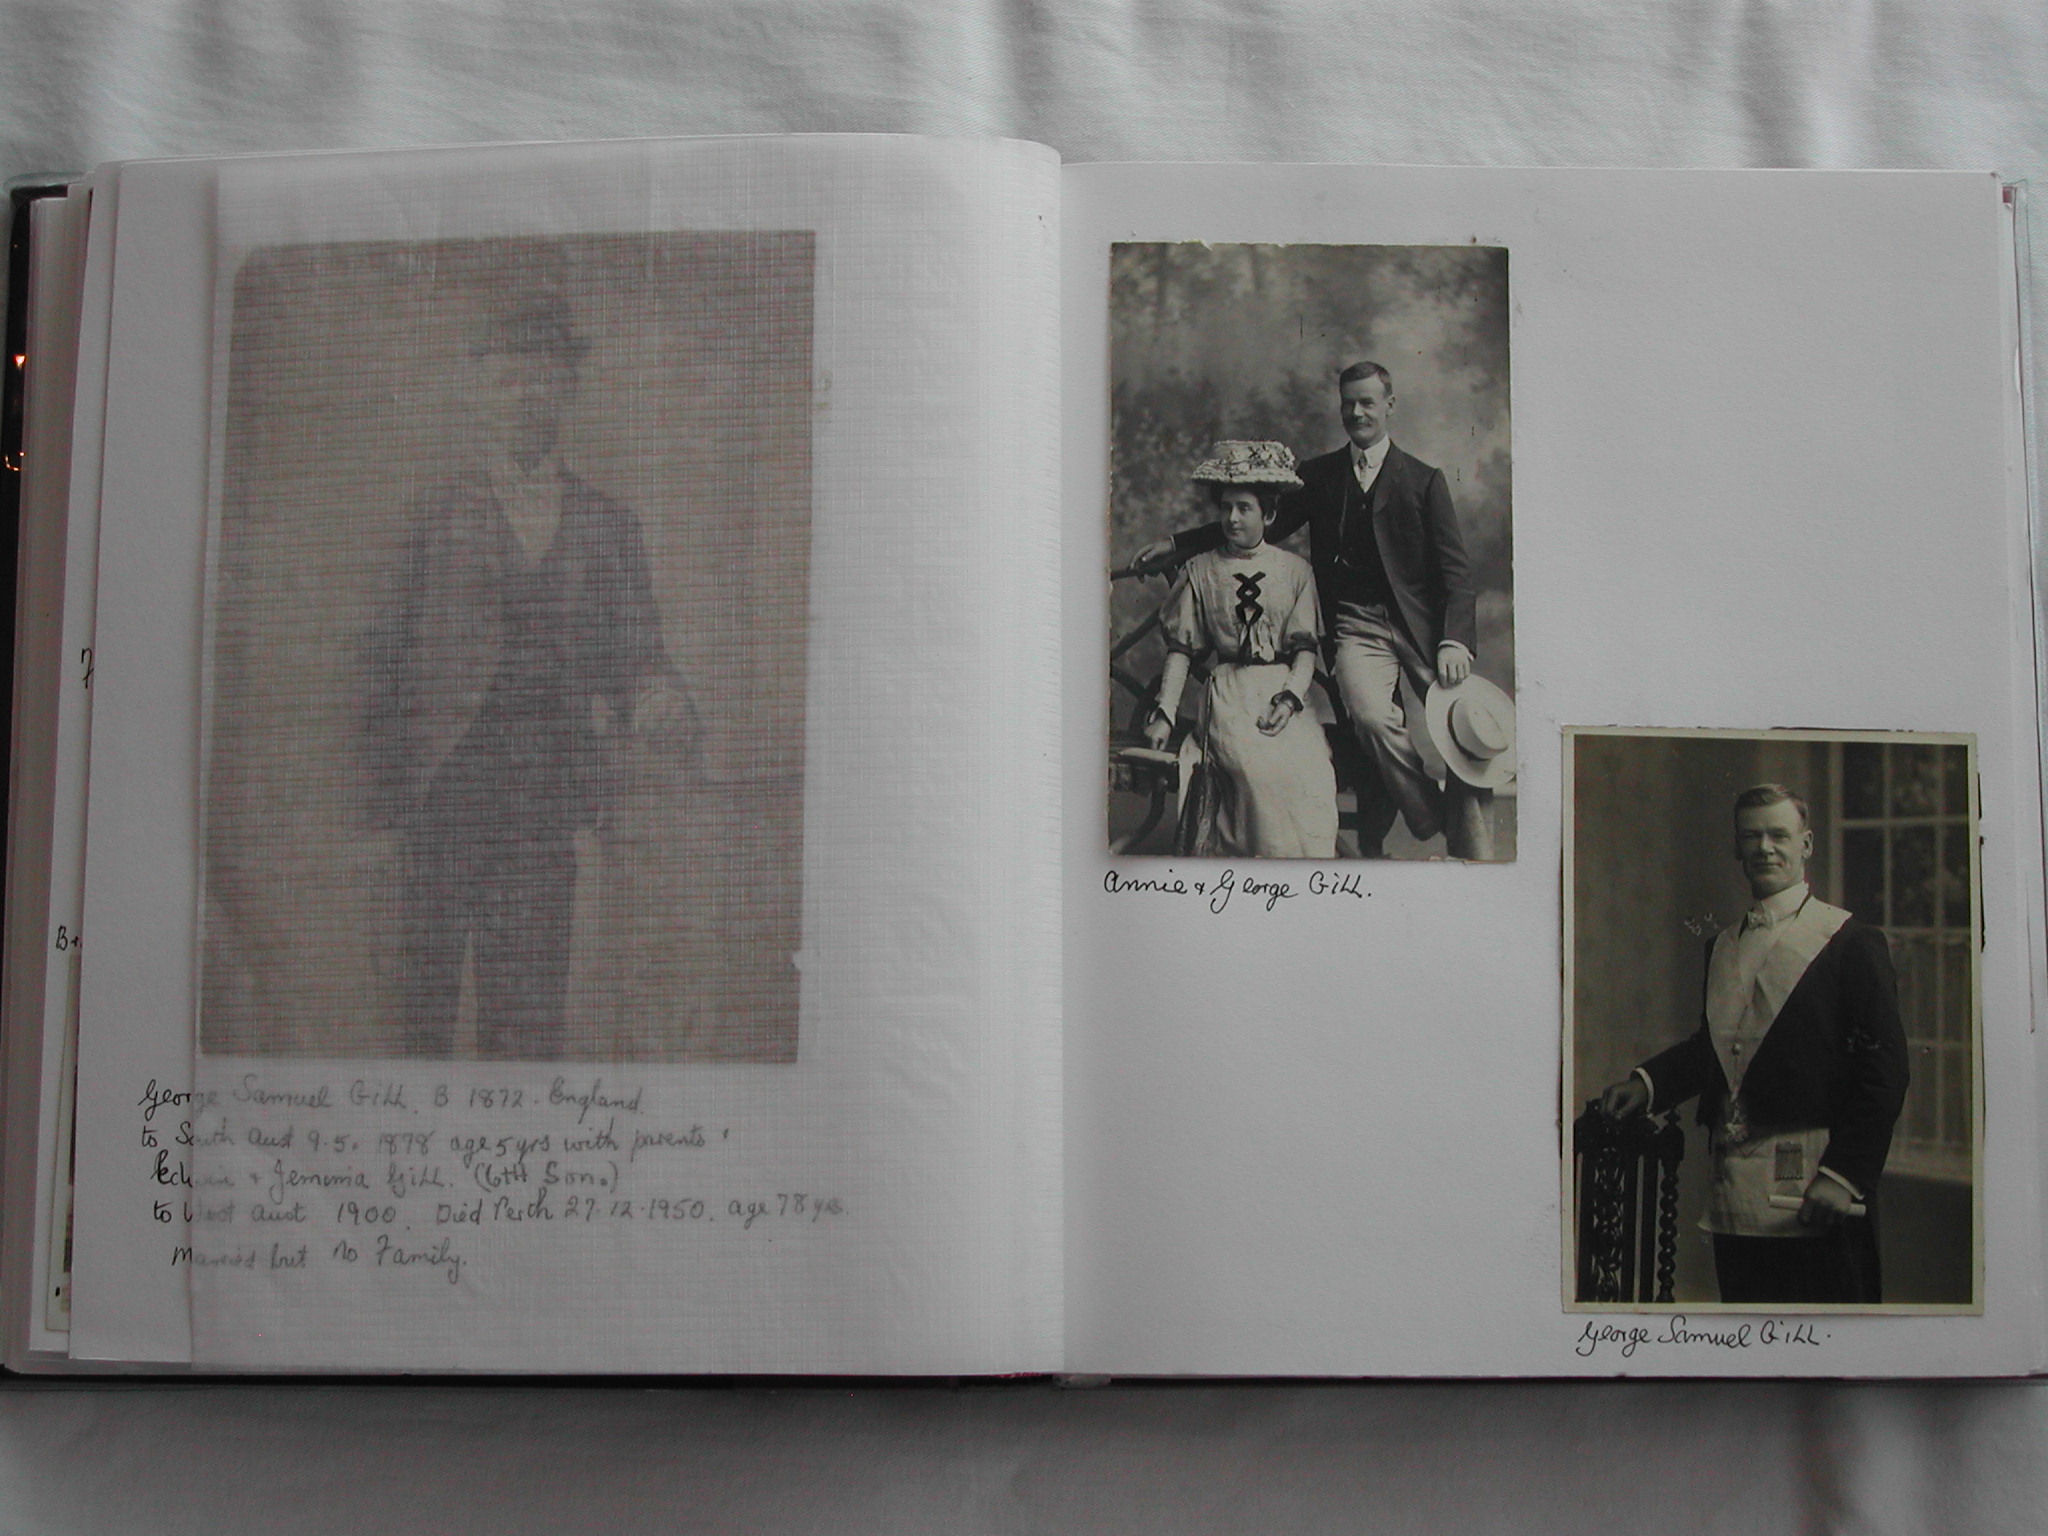 George Samuel Gill. B 1872. England.
to South Aust 9.5.1878 age 5 yrs with parents
& Jemima Gill. (6th Son.)
to West Aust 1900. Died Perth 27.12.1950. age 78 yrs.
Married but no Family.
Annie & George Gill.
George Samuel Gill.